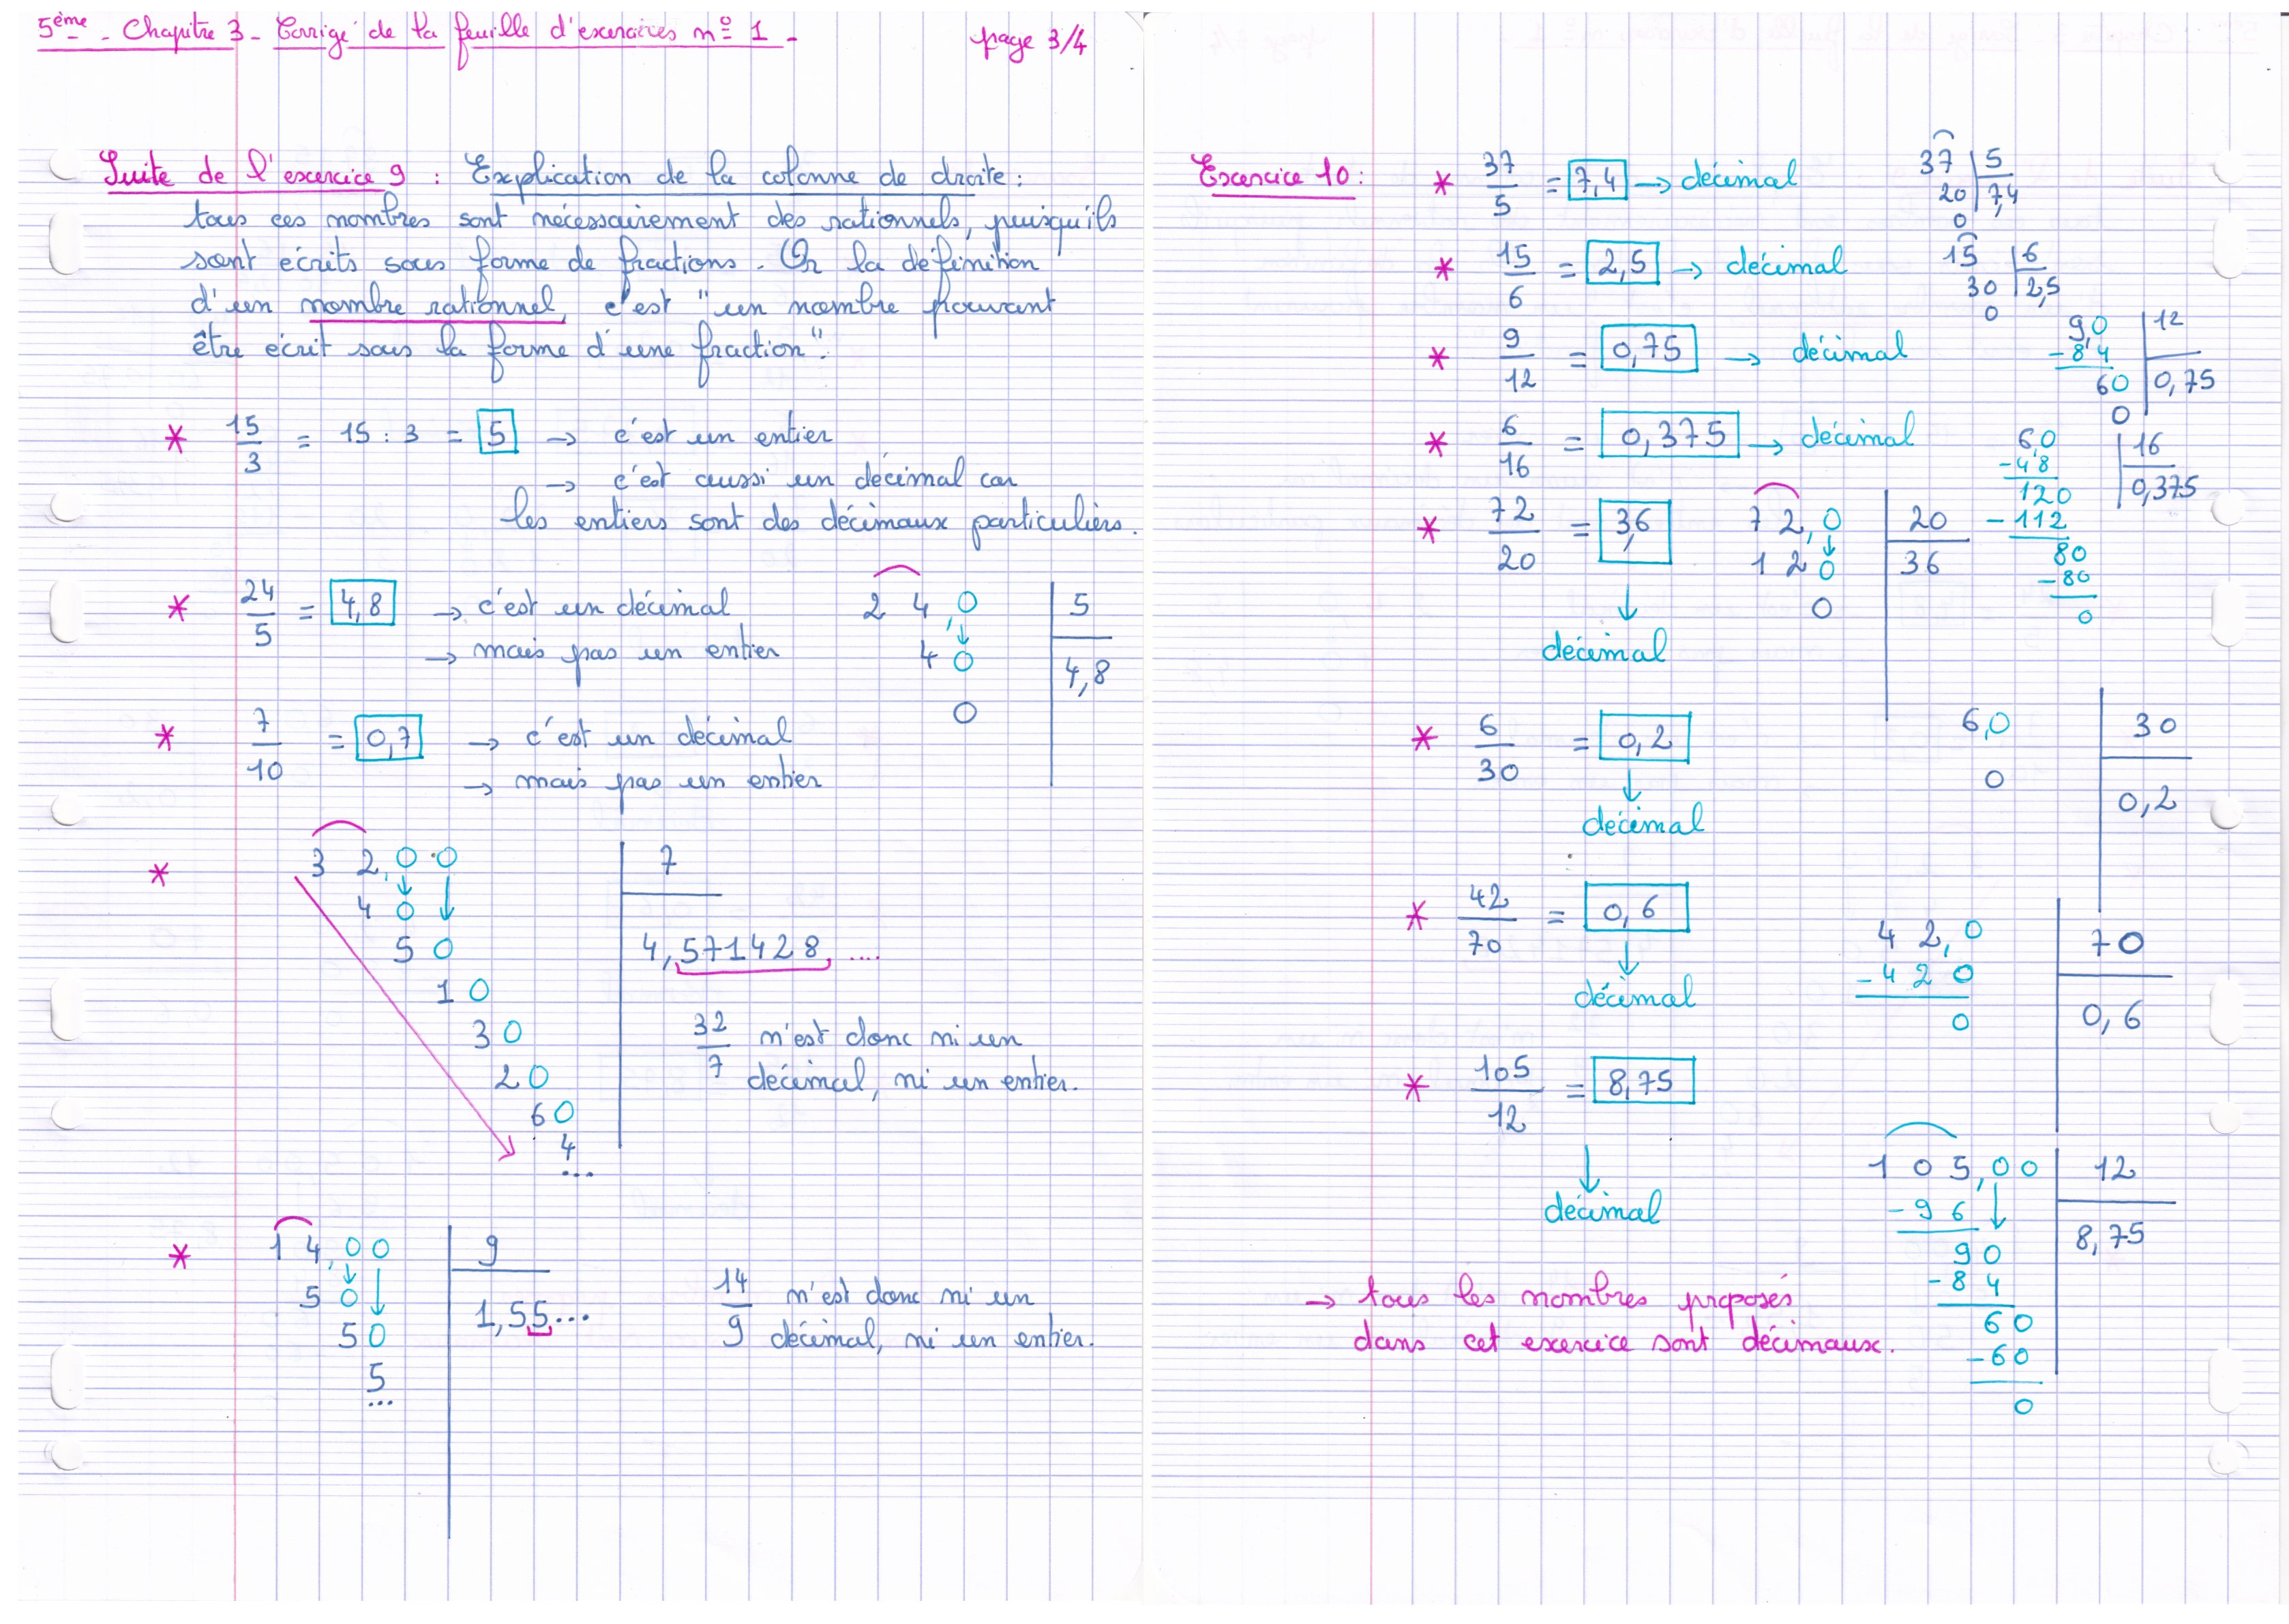 5ème - Chapitre 3 - Corrigé de la feuille d'exercices nº 1 -
page 3/4
Suite de l'exercice 9 : Explication de la colonne de droite :
tous ces nombres sont nécessairement des rationnels, puisqu'ils
sont écrits sous forme de fractions. Or la définition
d'un nombre rationnel, c'est "un nombre pouvant
être écrit sous la forme d'une fraction".
* 15/3 = 15 : 3 = 5 → c'est un entier
→ c'est aussi un décimal car
les entiers sont des décimaux particuliers.
* 24/5 = 4,8 → c'est un décimal
→ mais pas un entier
24,0 | 5
40 | 4,8
0
* 7/10 = 0,7 → c'est un décimal
→ mais pas un entier
* 32,00 | 7
40
50 | 4,571428 ....
10
30
20
60
4
...
32/7 n'est donc ni un
décimal, ni un entier.
* 14,00 | 9
50 | 1,55...
50
5
...
14/9 n'est donc ni un
décimal, ni un entier.
Exercice 10 :
* 37/5 = 7,4 → décimal
37 | 5
20 | 7,4
0
* 15/6 = 2,5 → décimal
15 | 6
30 | 2,5
0
* 9/12 = 0,75 → décimal
9,0 | 12
-84
60 | 0,75
0
* 6/16 = 0,375 → décimal
6,0 | 16
-48
120 | 0,375
-112
80
-80
0
* 72/20 = 3,6
↓
décimal
72,0 | 20
120 | 36
0
* 6/30 = 0,2
↓
décimal
6,0 | 30
0 | 0,2
* 42/70 = 0,6
↓
décimal
42,0 | 70
-420
0 | 0,6
* 105/12 = 8,75
↓
décimal
105,00 | 12
-96
90 | 8,75
-84
60
-60
0
→ tous les nombres proposés
dans cet exercice sont décimaux.